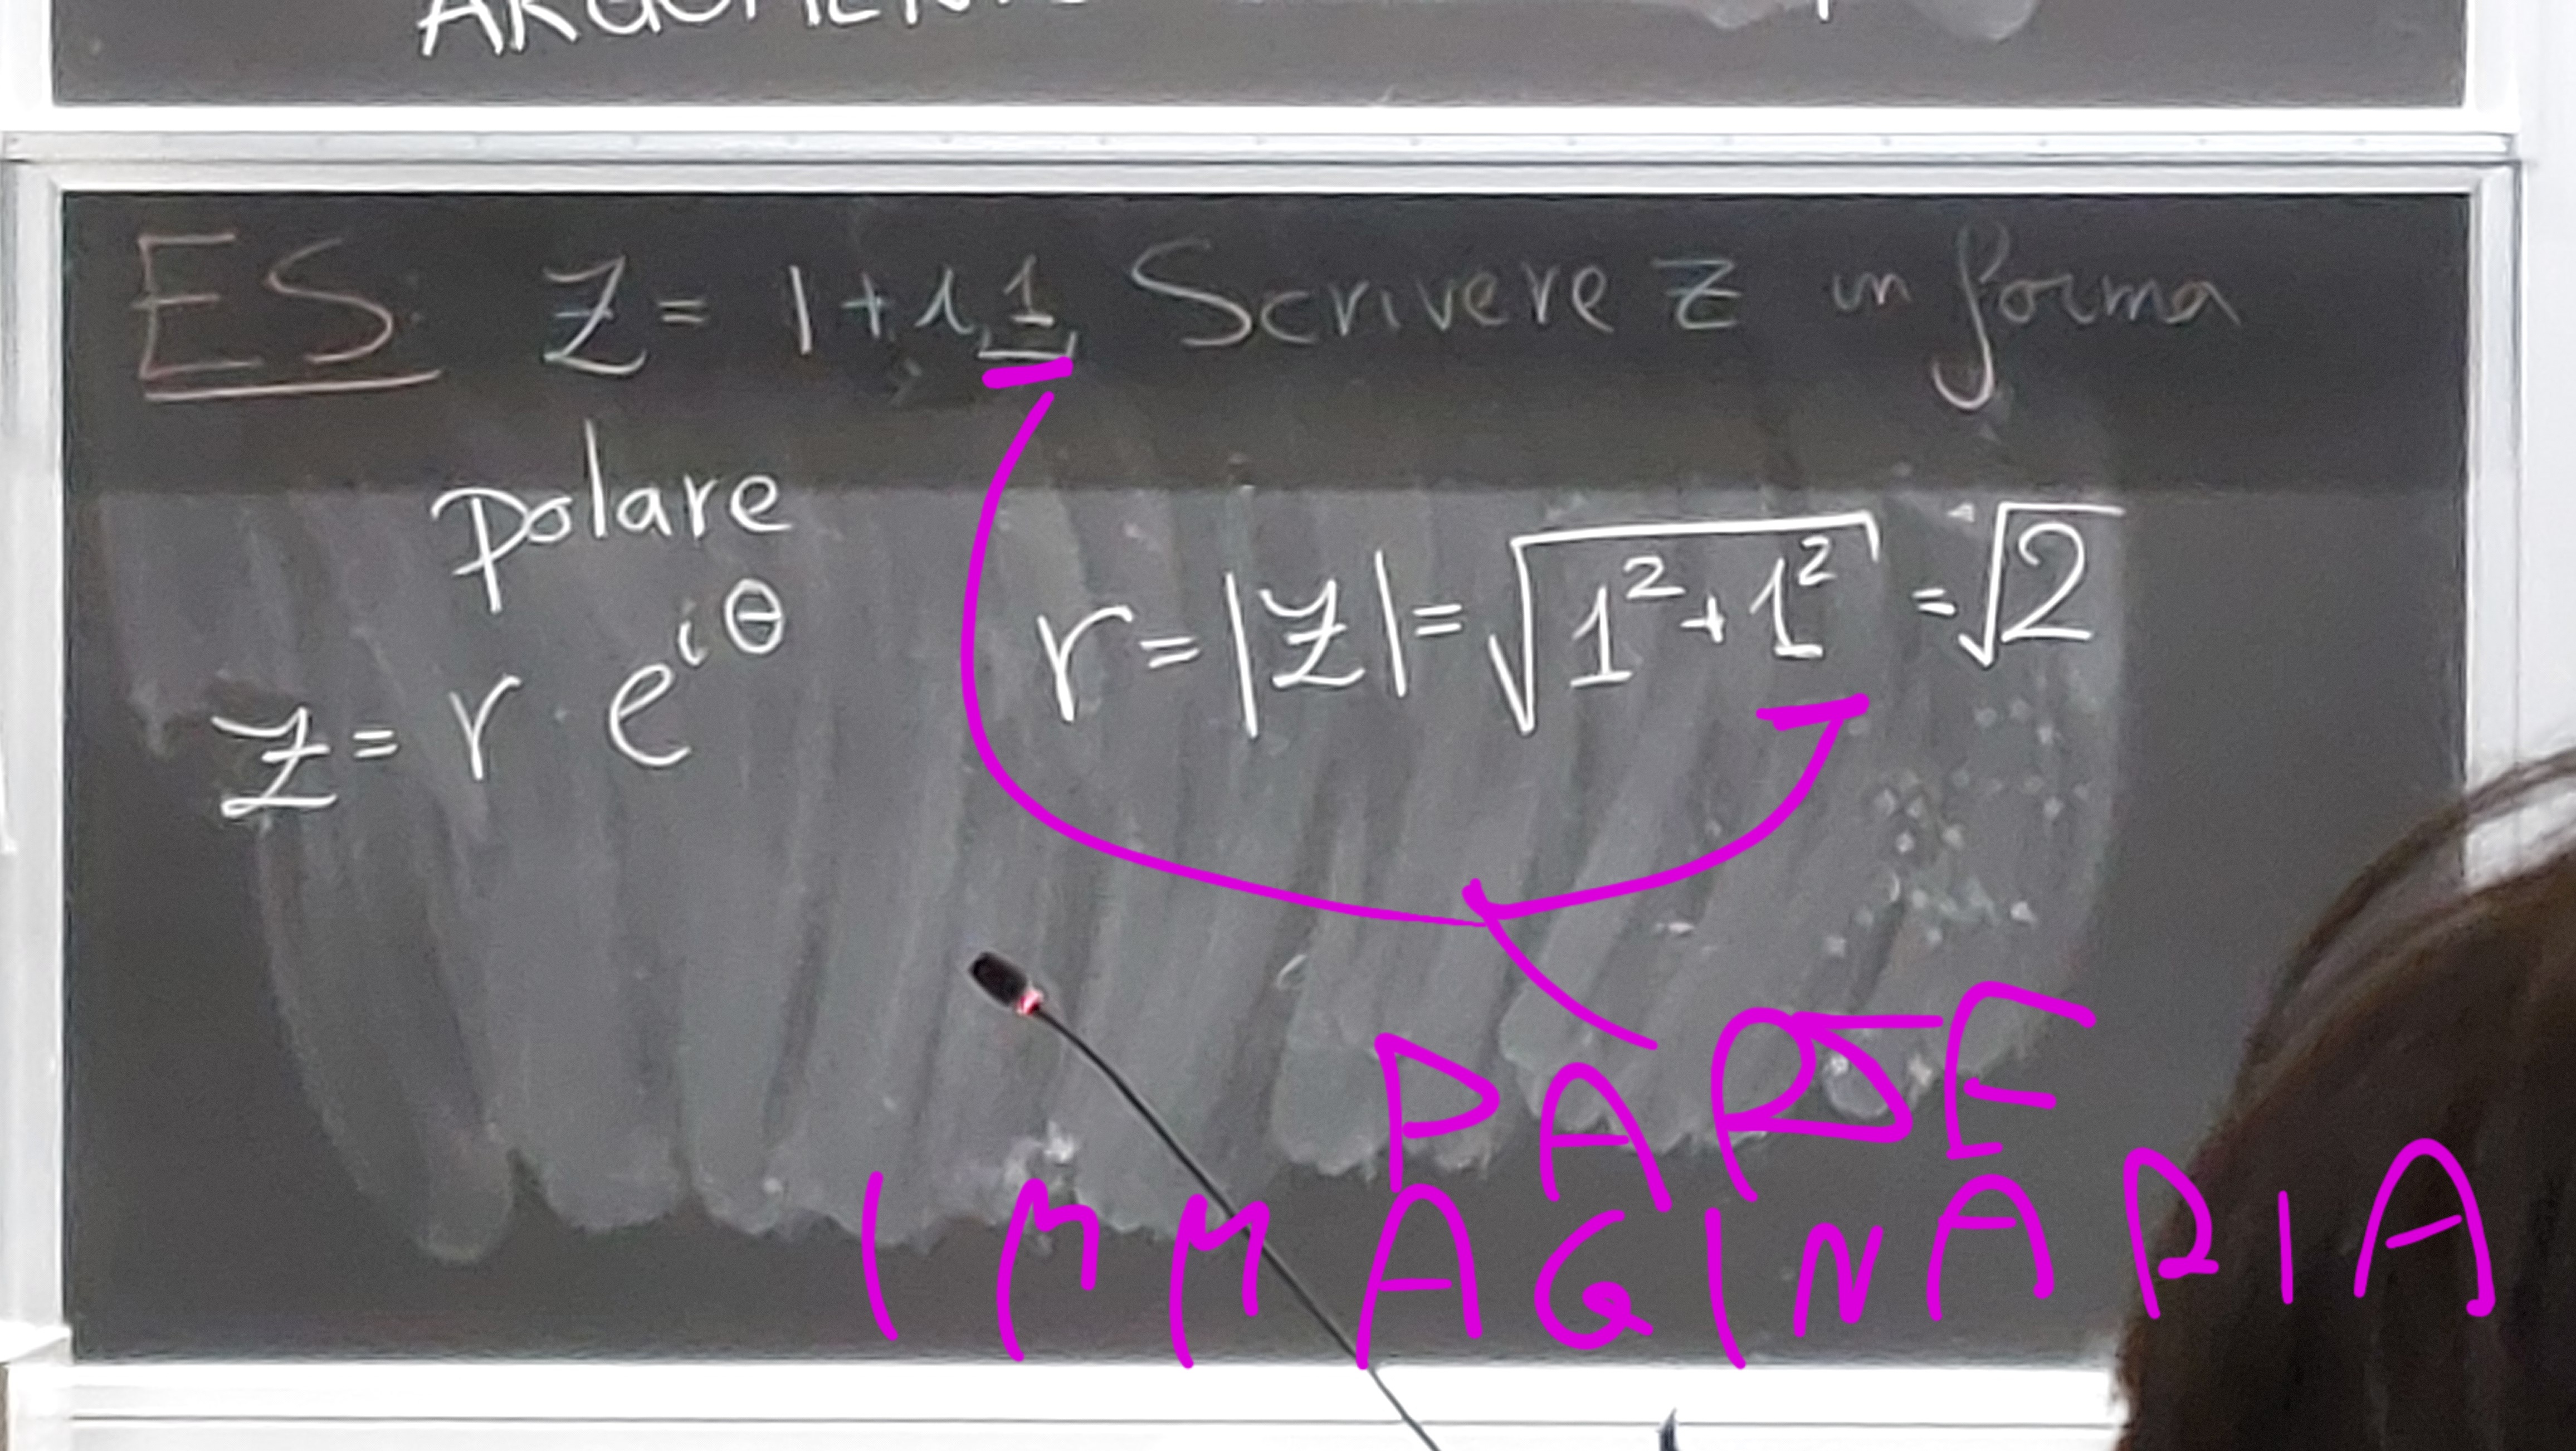 ES: z = 1 + i 1 Scrivere z in forma
polare
z = r e^{iθ} r = |z| = √(1² + 1²) = √2
PARTE
IMMAGINARIA